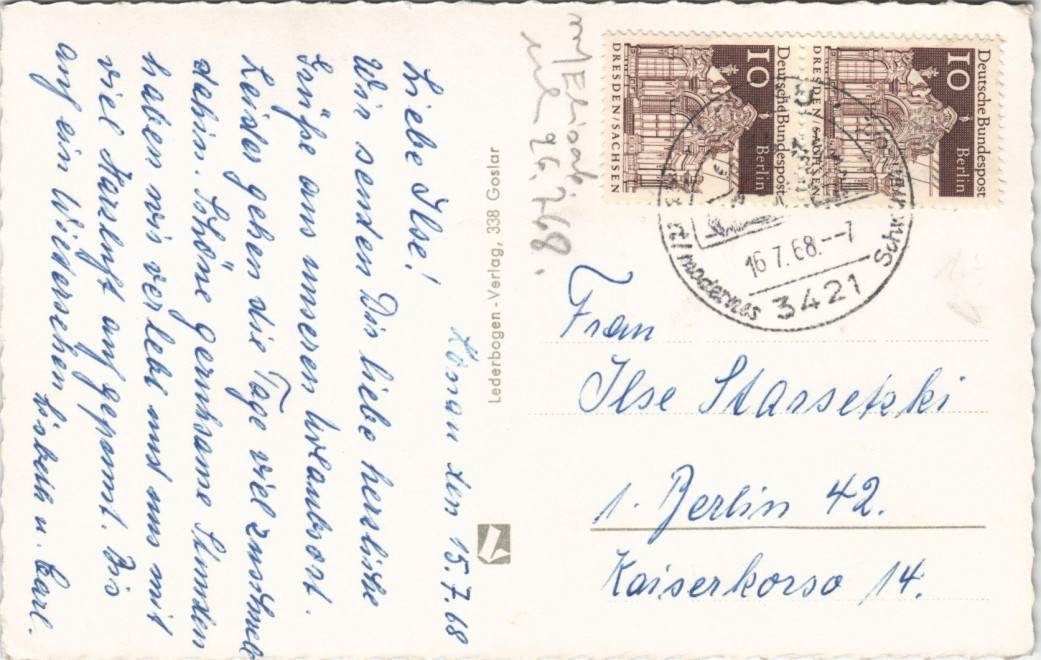 Lonau den 15.7.68
Liebe Ilse!
Wir senden Dir liebe herzliche
Grüße aus unseren Urlaubsort.
Leider gehen die Tage viel zu schnell
dahin. Schöne geruhsame Stunden
haben wir verlebt und uns mit
viel Harzluft aufgepumpt. Bis
auf ein Wiedersehen Lisbeth u. Carl.
Lederbogen-Verlag, 338 Goslar
26.7.68.
Deutsche Bundespost
Berlin
10
DRESDEN/SACHSEN
Deutsche Bundespost
Berlin
10
DRESDEN/SACHSEN
16.7.68.--7
3421
modernes
Frau
Ilse Starsetzki
1. Berlin 42.
Kaiserkorso 14.